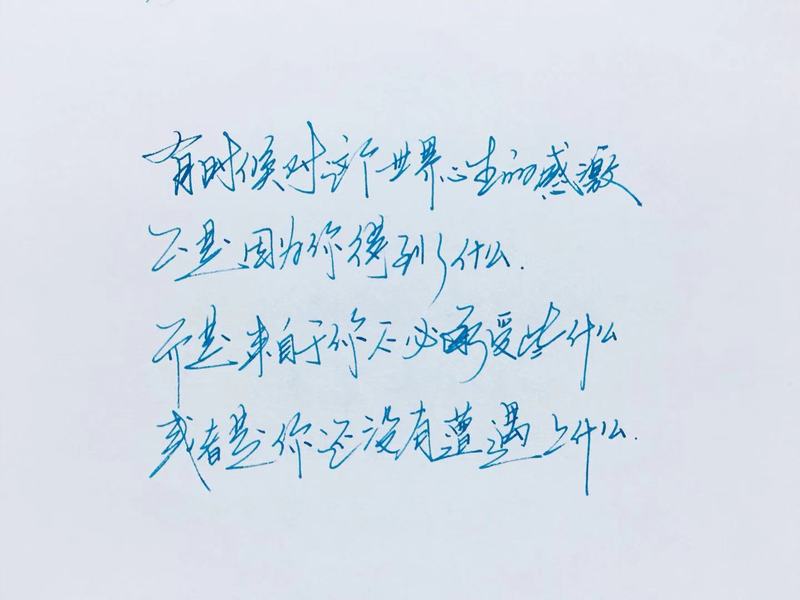 有时候对这个世界心生的感激
不是因为你得到了什么.
而是来自于你不必承受些什么
或者是你还没有遭遇上什么.